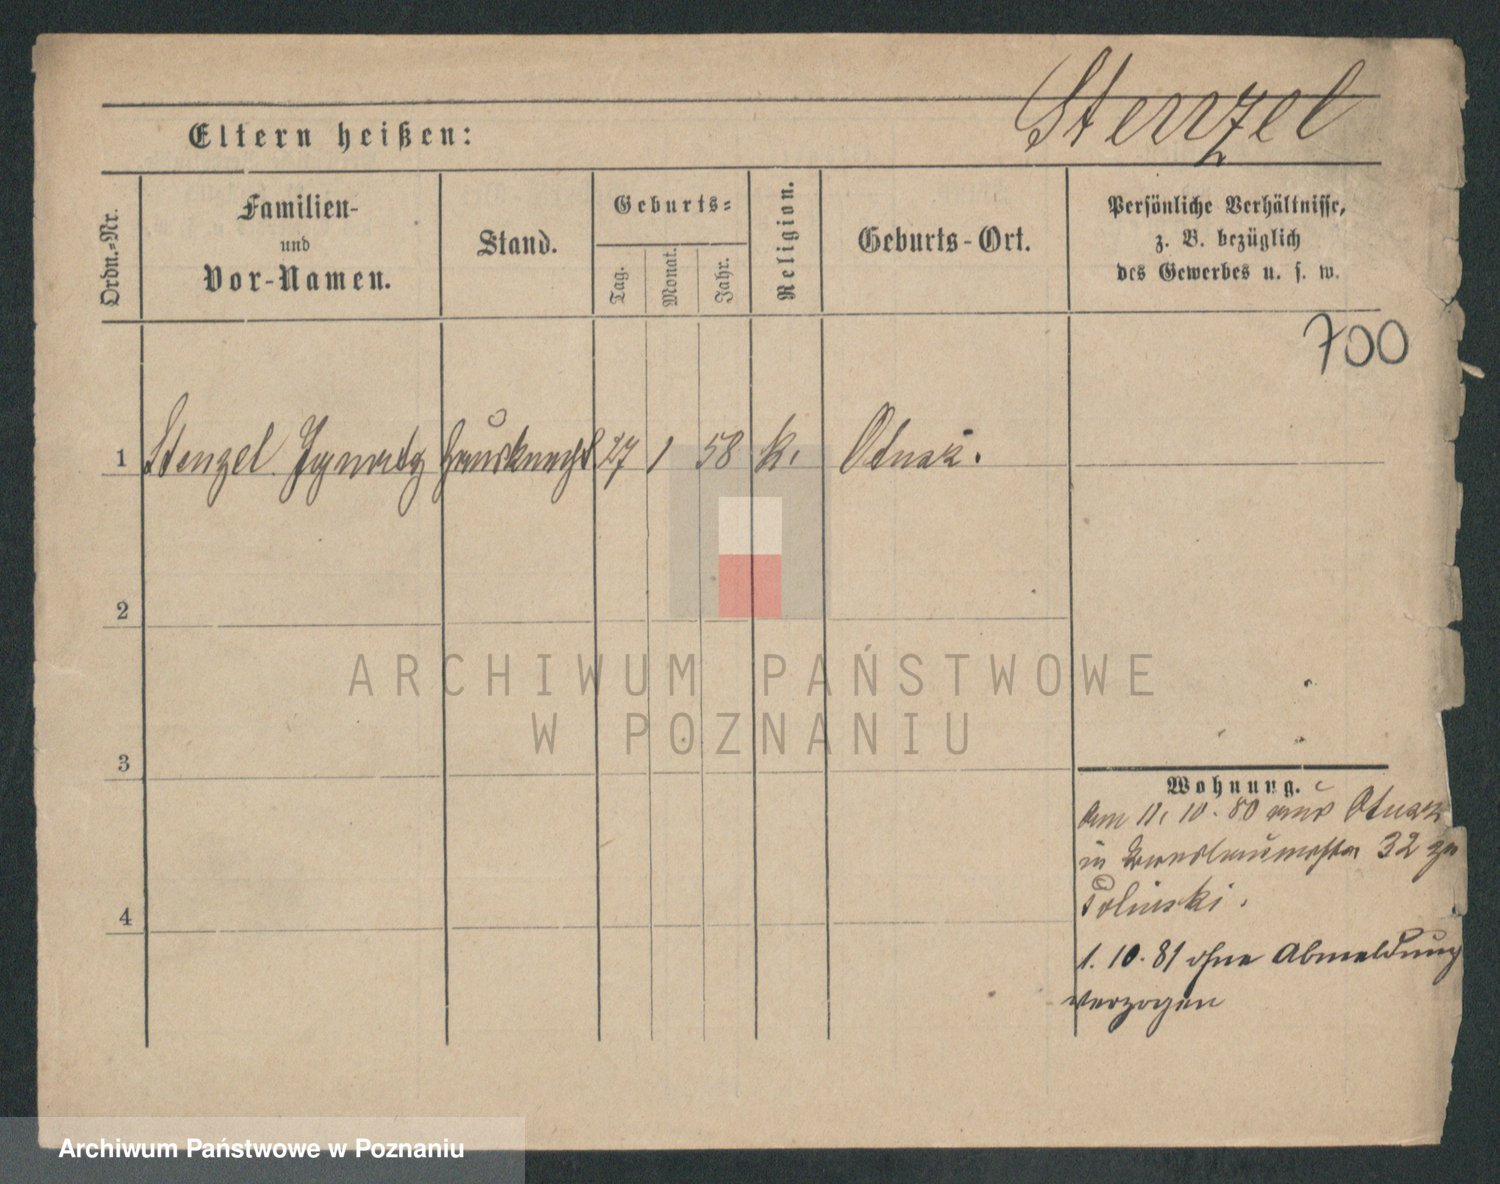 Stenzel
Eltern heißen:
Ordn.-Nr.
Familien-
und
Vor-Namen.
Stand.
Geburts-
Tag.
Monat.
Jahr.
Religion.
Geburts-Ort.
Persönliche Verhältnisse,
z. B. bezüglich
des Gewerbes u. s. w.
700
1 Stenzel Ignatz Hausknecht 27 1 58 k.
2
ARCHIWUM PAŃSTWOWE
W POZNANIU
3
Wohnung.
am 11. 10. 80 aus
in 32
Polinski.
4
1. 10. 81 ohne Abmeldung
verzogen
Archiwum Państwowe w Poznaniu